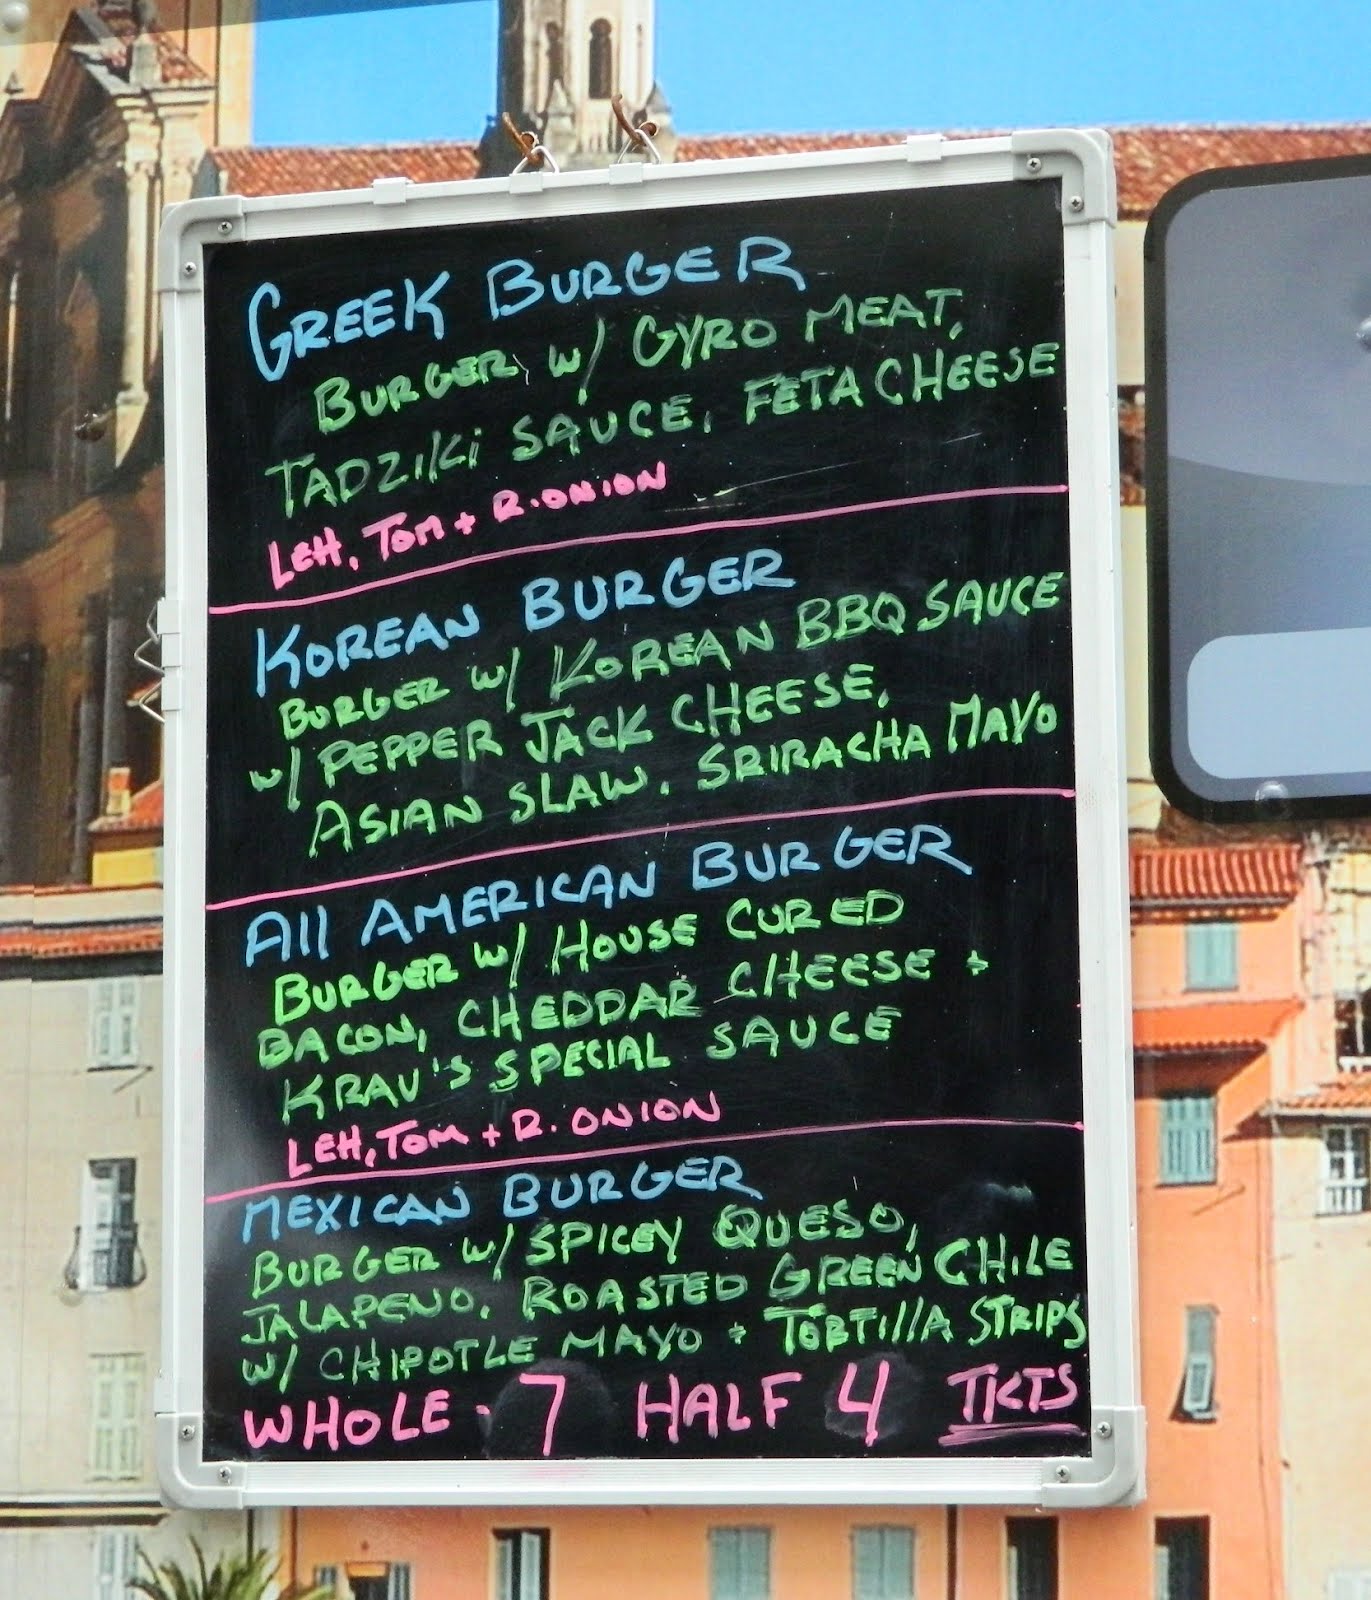 GREEK BURGER
BURGER w/ GYRO MEAT,
TADZiKi SAUCE, FETA CHEESE
LEH, TOM + R.ONION
KOREAN BURGER
BURGER w/ KOREAN BBQ SAUCE
w/ PEPPER JACK CHEESE,
ASIAN SLAW, SRIRACHA MAYO
All AMERICAN BURGER
BURGER w/ HOUSE CURED
BACON, CHEDDAR CHEESE +
KRAV'S SPECIAL SAUCE
LEH, TOM + R. ONION
MEXICAN BURGER
BURGER w/ SPICEY QUESO,
JALAPENO, ROASTED GREEN CHILE
w/ CHIPOTLE MAYO + TORTIllA STRIPS
WHOLE - 7 HALF 4 TKTS